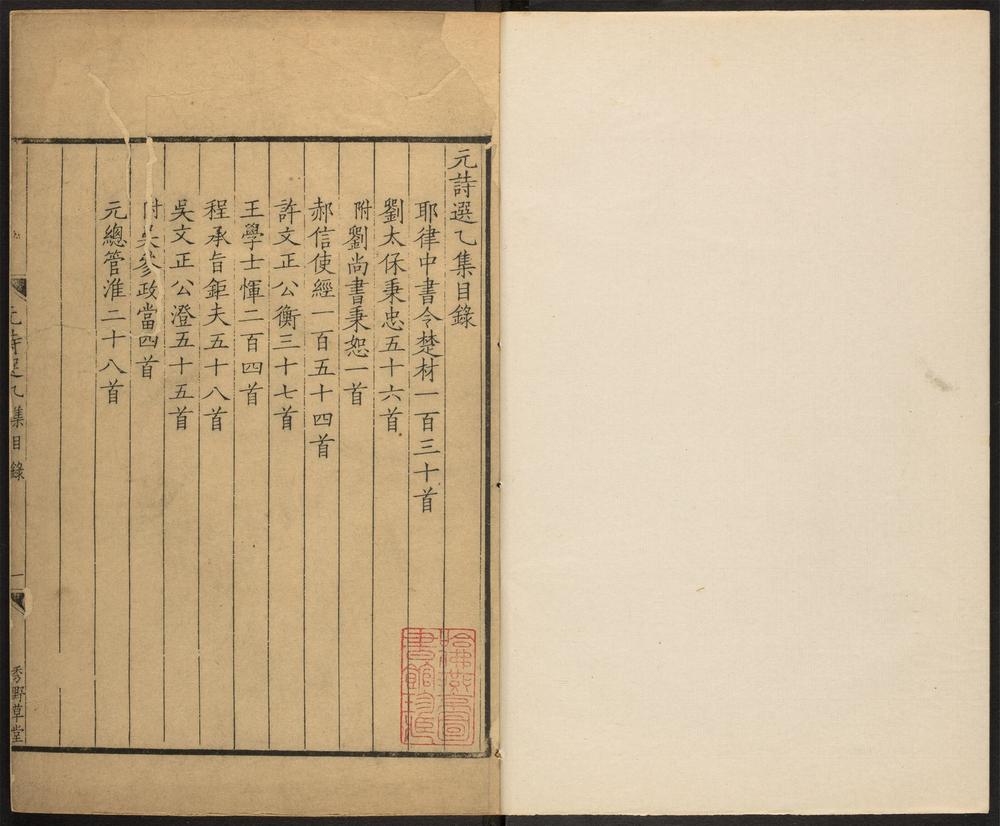 元詩選乙集目錄
耶律中書令楚材一百三十首
劉太保秉忠五十六首
附劉尚書秉恕一首
郝信使經一百五十四首
許文正公衡三十七首
王學士惲二百四首
程承旨鉅夫五十八首
吳文正公澄五十五首
附吳參政當四首
元總管淮二十八首
元詩選乙集目錄
一
秀野草堂
哈佛燕京圖
書館珍藏